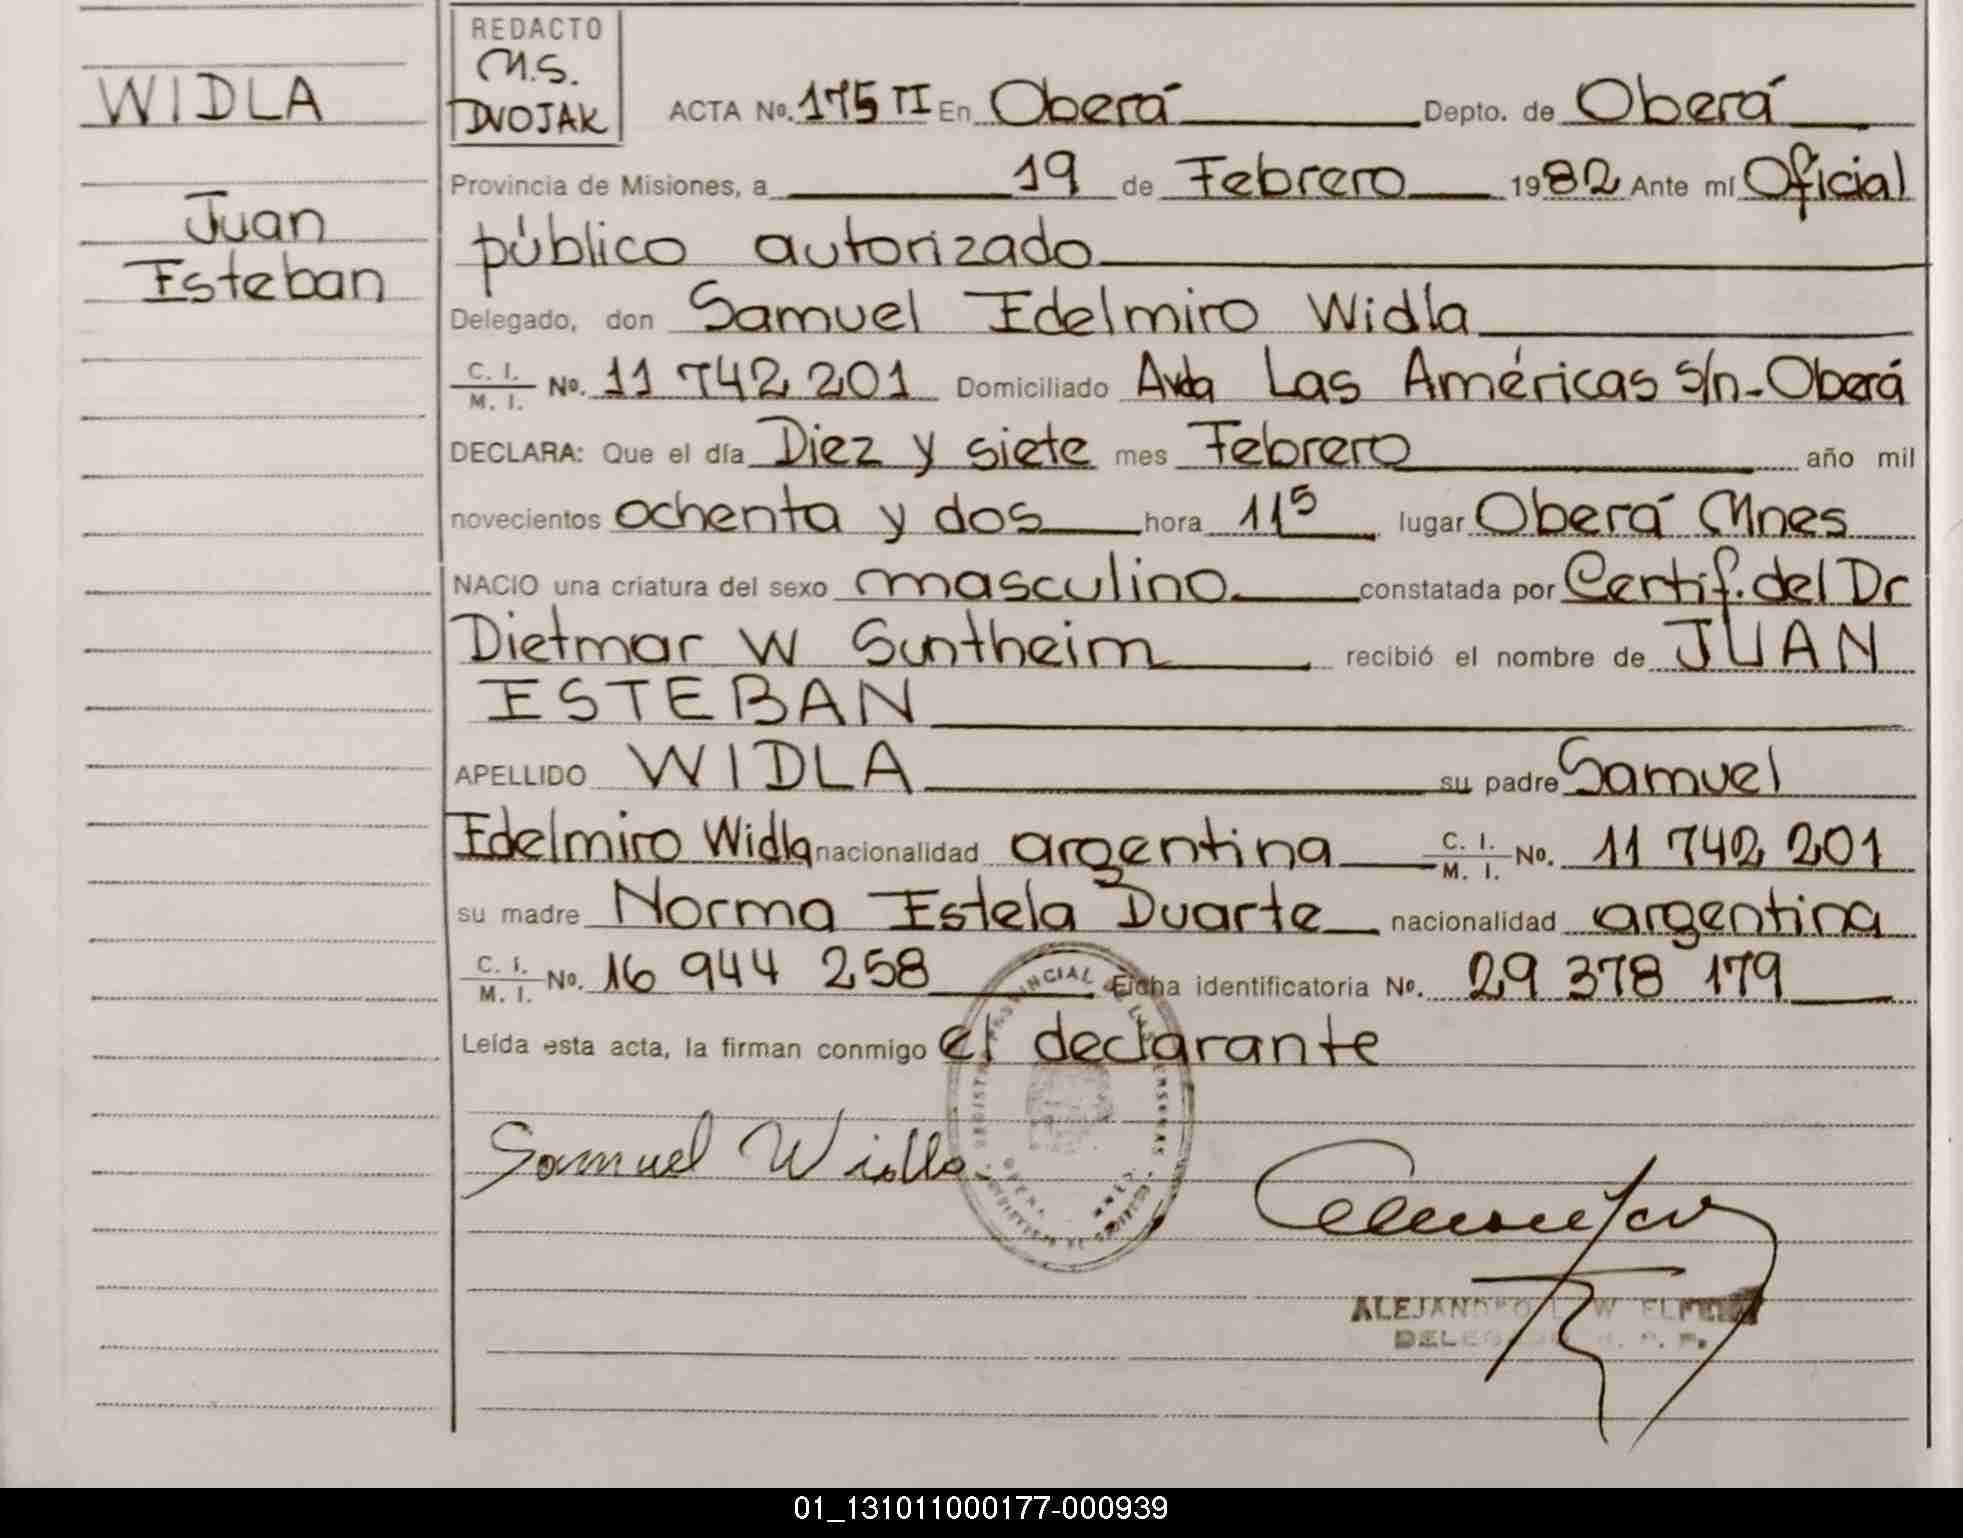 WIDLA
Juan
Esteban
REDACTO
M.S.
DVOJAK
ACTA No. 175 TI En Oberá Depto. de Oberá
Provincia de Misiones, a 19 de Febrero 1982 Ante mí Oficial
público autorizado
Delegado, don Samuel Edelmiro Widla
C. I. M. I. No. 11 742 201 Domiciliado Avda Las Américas s/n - Oberá
DECLARA: Que el día Diez y siete mes Febrero año mil
novecientos ochenta y dos hora 11⁵ lugar Oberá Mnes
NACIO una criatura del sexo masculino constatada por Certif. del Dr
Dietmar W Suntheim recibió el nombre de JUAN
ESTEBAN
APELLIDO WIDLA su padre Samuel
Edelmiro Widla nacionalidad argentina C. I. M. I. No. 11 742 201
su madre Norma Estela Duarte nacionalidad argentina
C. I. M. I. No. 16 944 258 Ficha identificatoria No. 29 378 179
Leída esta acta, la firman conmigo el declarante
Samuel Widla
ALEJANDRO
DELEGADO
01_131011000177-000939